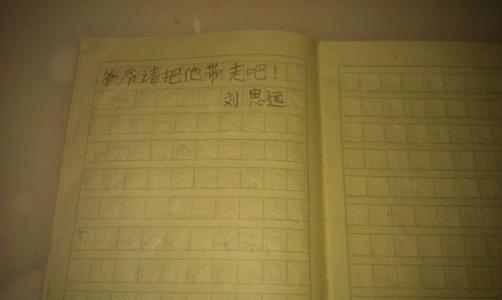 爷爷请把他带走吧！
刘思远